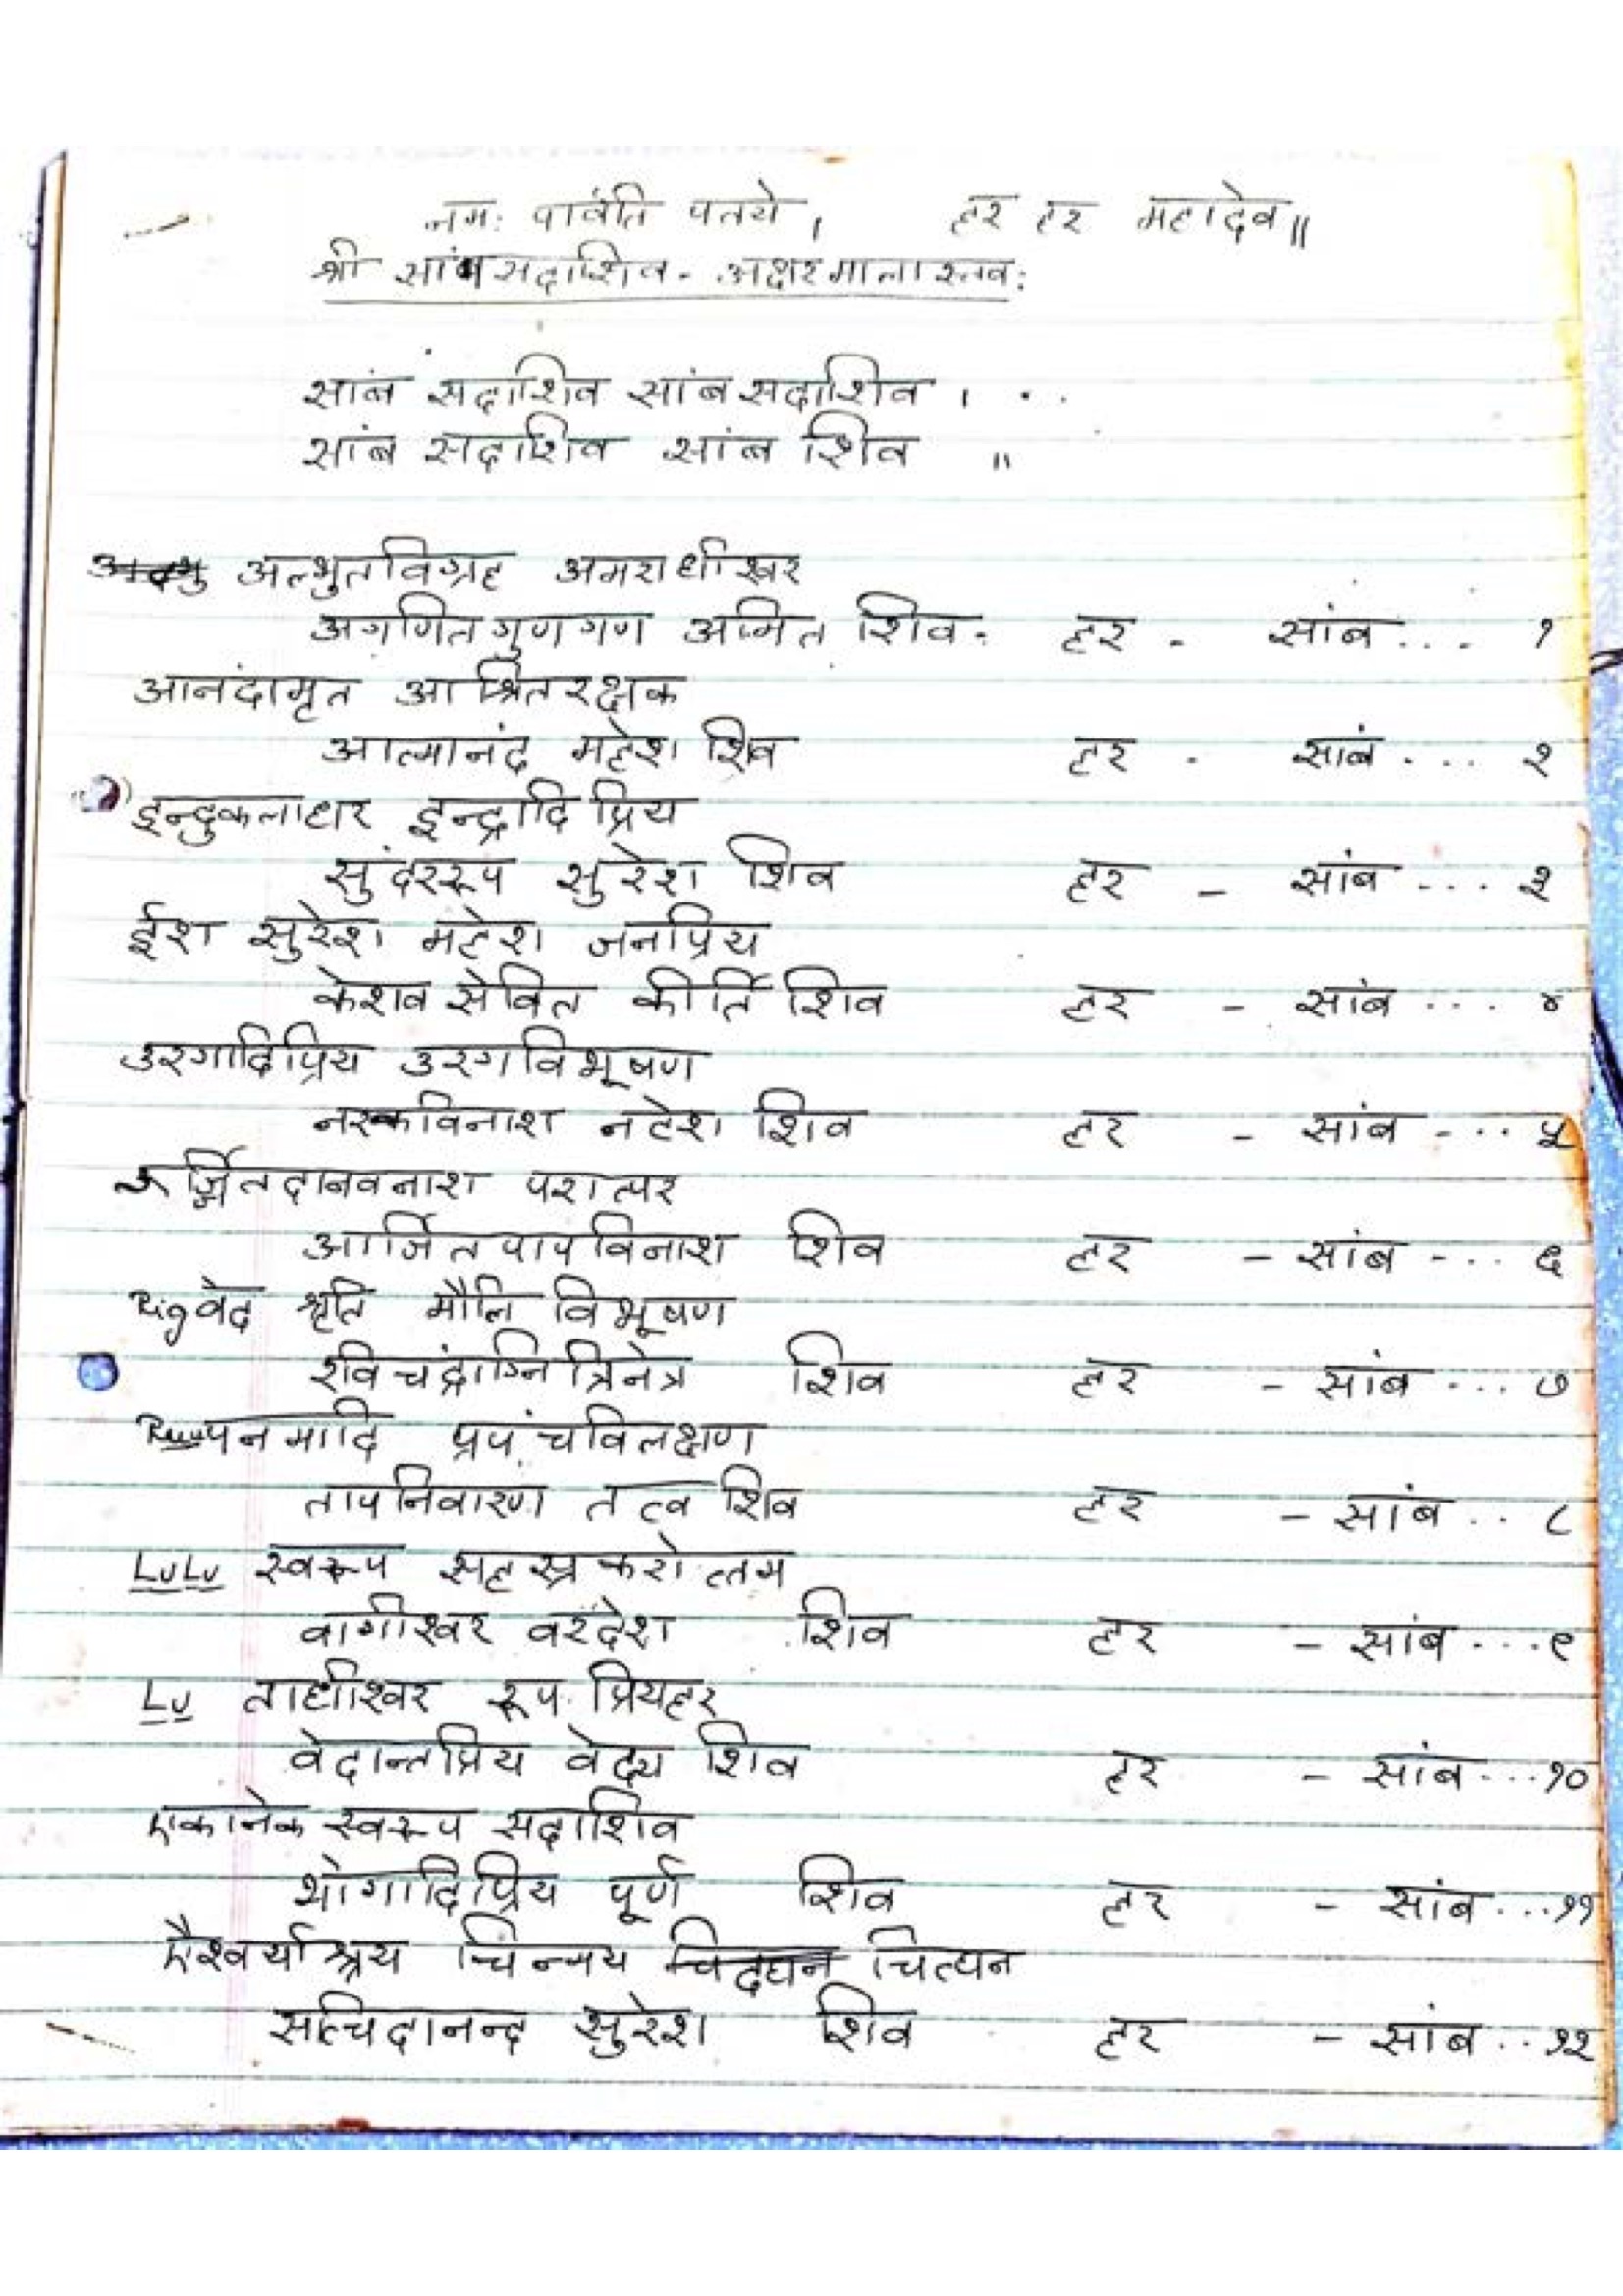 नमः पार्वति पतये । हर हर महादेव ॥
श्री सांब सदाशिव - अक्षरमालास्तवः
सांब सदाशिव सांब सदाशिव ।
सांब सदाशिव सांब शिव ॥
अत्भुतविग्रह अमराधीश्वर
अगणितगुणगण अमित शिव. हर - सांब ... १
आनंदामृत आश्रितरक्षक
आत्मानंद महेश शिव हर - सांब .... २
इन्दुकलाधर इन्द्रादि प्रिय
सुंदररूप सुरेश शिव हर - सांब .... ३
ईश सुरेश महेश जनप्रिय
केशव सेवित कीर्ति शिव हर - सांब .... ४
उरगादिप्रिय उरगविभूषण
नरकविनाश नटेश शिव हर - सांब -... ५
ऊर्जितदानवनाश परात्पर
आर्जित पापविनाश शिव हर - सांब -... ६
Rigवेद श्रृति मौलि विभूषण
रवि चद्रांग्नि त्रिनेत्र शिव हर - सांब ... ७
पनमादि प्रपंचविलक्षण
तापनिवारण तत्व शिव हर - सांब .. ८
LuLu स्वरूप सहस्र करोत्तम
वागीश्वर वरदेश शिव हर - सांब ... ९
Lu ताधीश्वर रूप प्रियहर
वेदान्तप्रिय वेद्य शिव हर - सांब ... १०
एकानेक स्वरूप सदाशिव
भोगादिप्रिय पूर्ण शिव हर - सांब ... ११
ऐश्वर्याश्रय चिन्मय चिद्घन चित्घन
सत्चिदानन्द सुरेश शिव हर - सांब .. १२